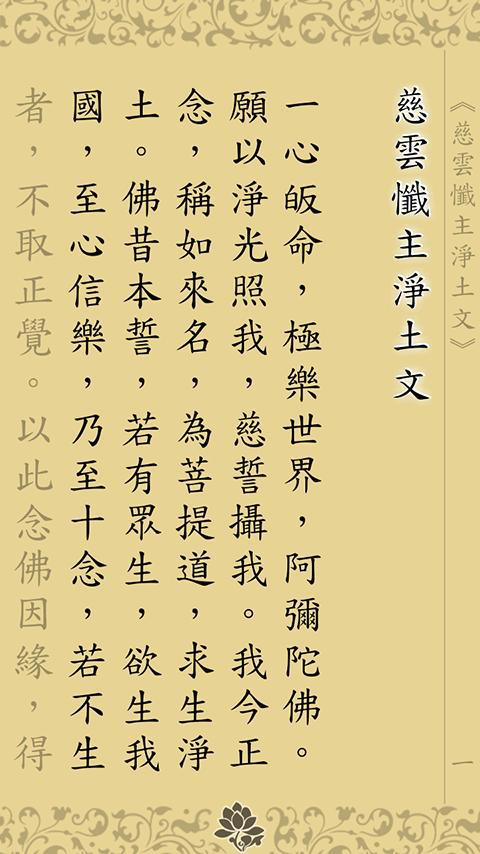 《慈雲懺主淨土文》
一
慈雲懺主淨土文
一心皈命，極樂世界，阿彌陀佛。
願以淨光照我，慈誓攝我。我今正
念，稱如來名，為菩提道，求生淨
土。佛昔本誓，若有眾生，欲生我
國，至心信樂，乃至十念，若不生
者，不取正覺。以此念佛因緣，得